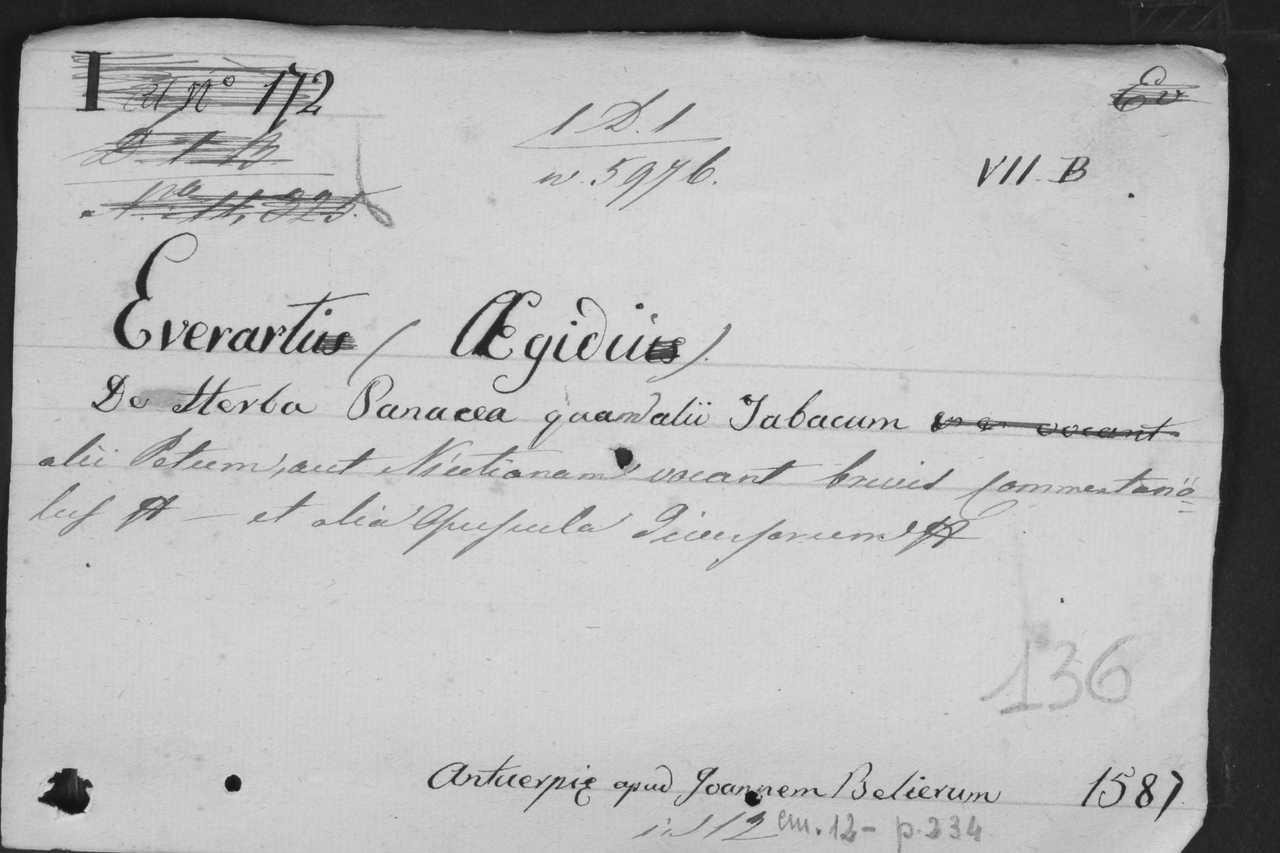 I ad N° 172
Ev
1 D. 1
n. 5976.
VII B
D 1 B
Everartus (Ægidius).
De Herba Panacea quam alii Tabacum vocant
alii Petum, aut Nicotianam vocant brevis Commentario=
lus et alia Opuscula Diversorum
136
Antuerpię apud Joannem Belierum 1587
in 12 cm. 12 - p. 234